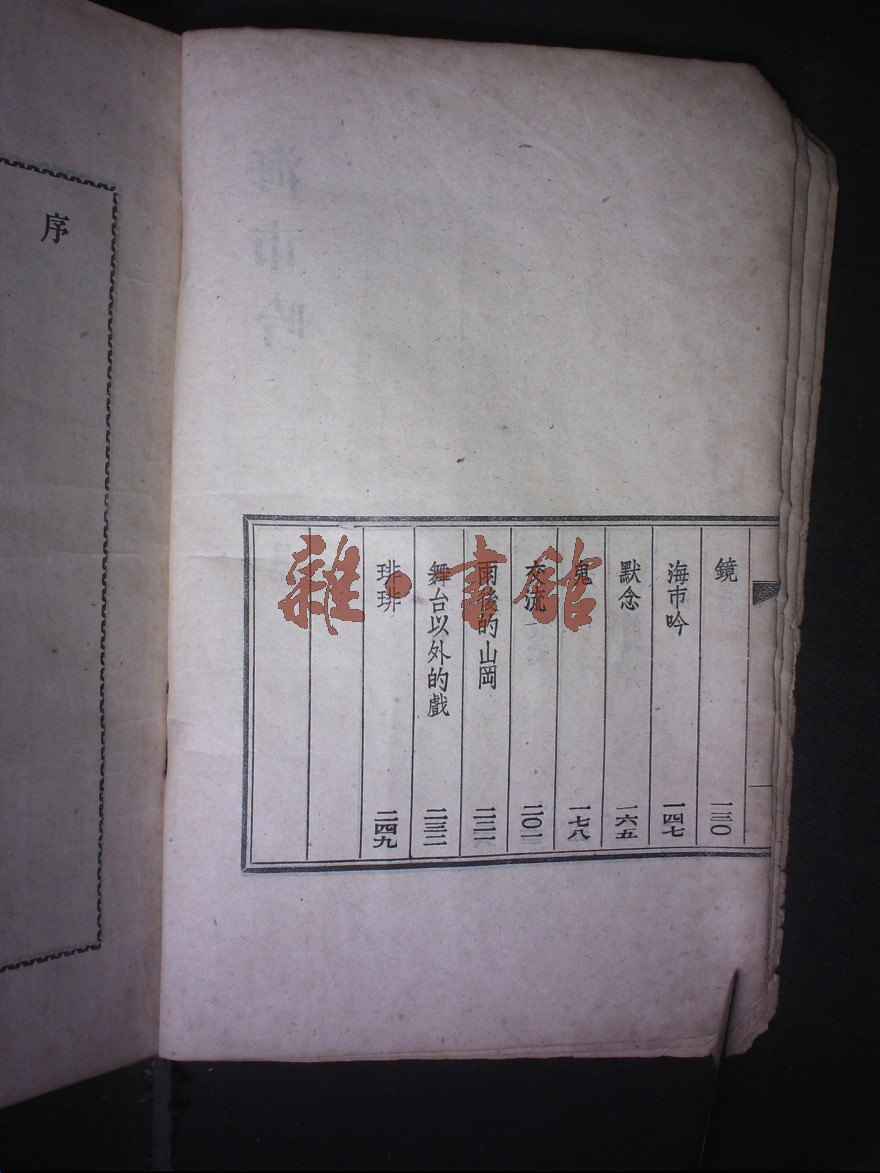 鏡 一三〇
海市吟 一四七
默念 一六五
鬼 一七八
交流 二〇一
雨後的山岡 二二一
舞台以外的戲 二三二
琲琲 二四九
序
雜·書館